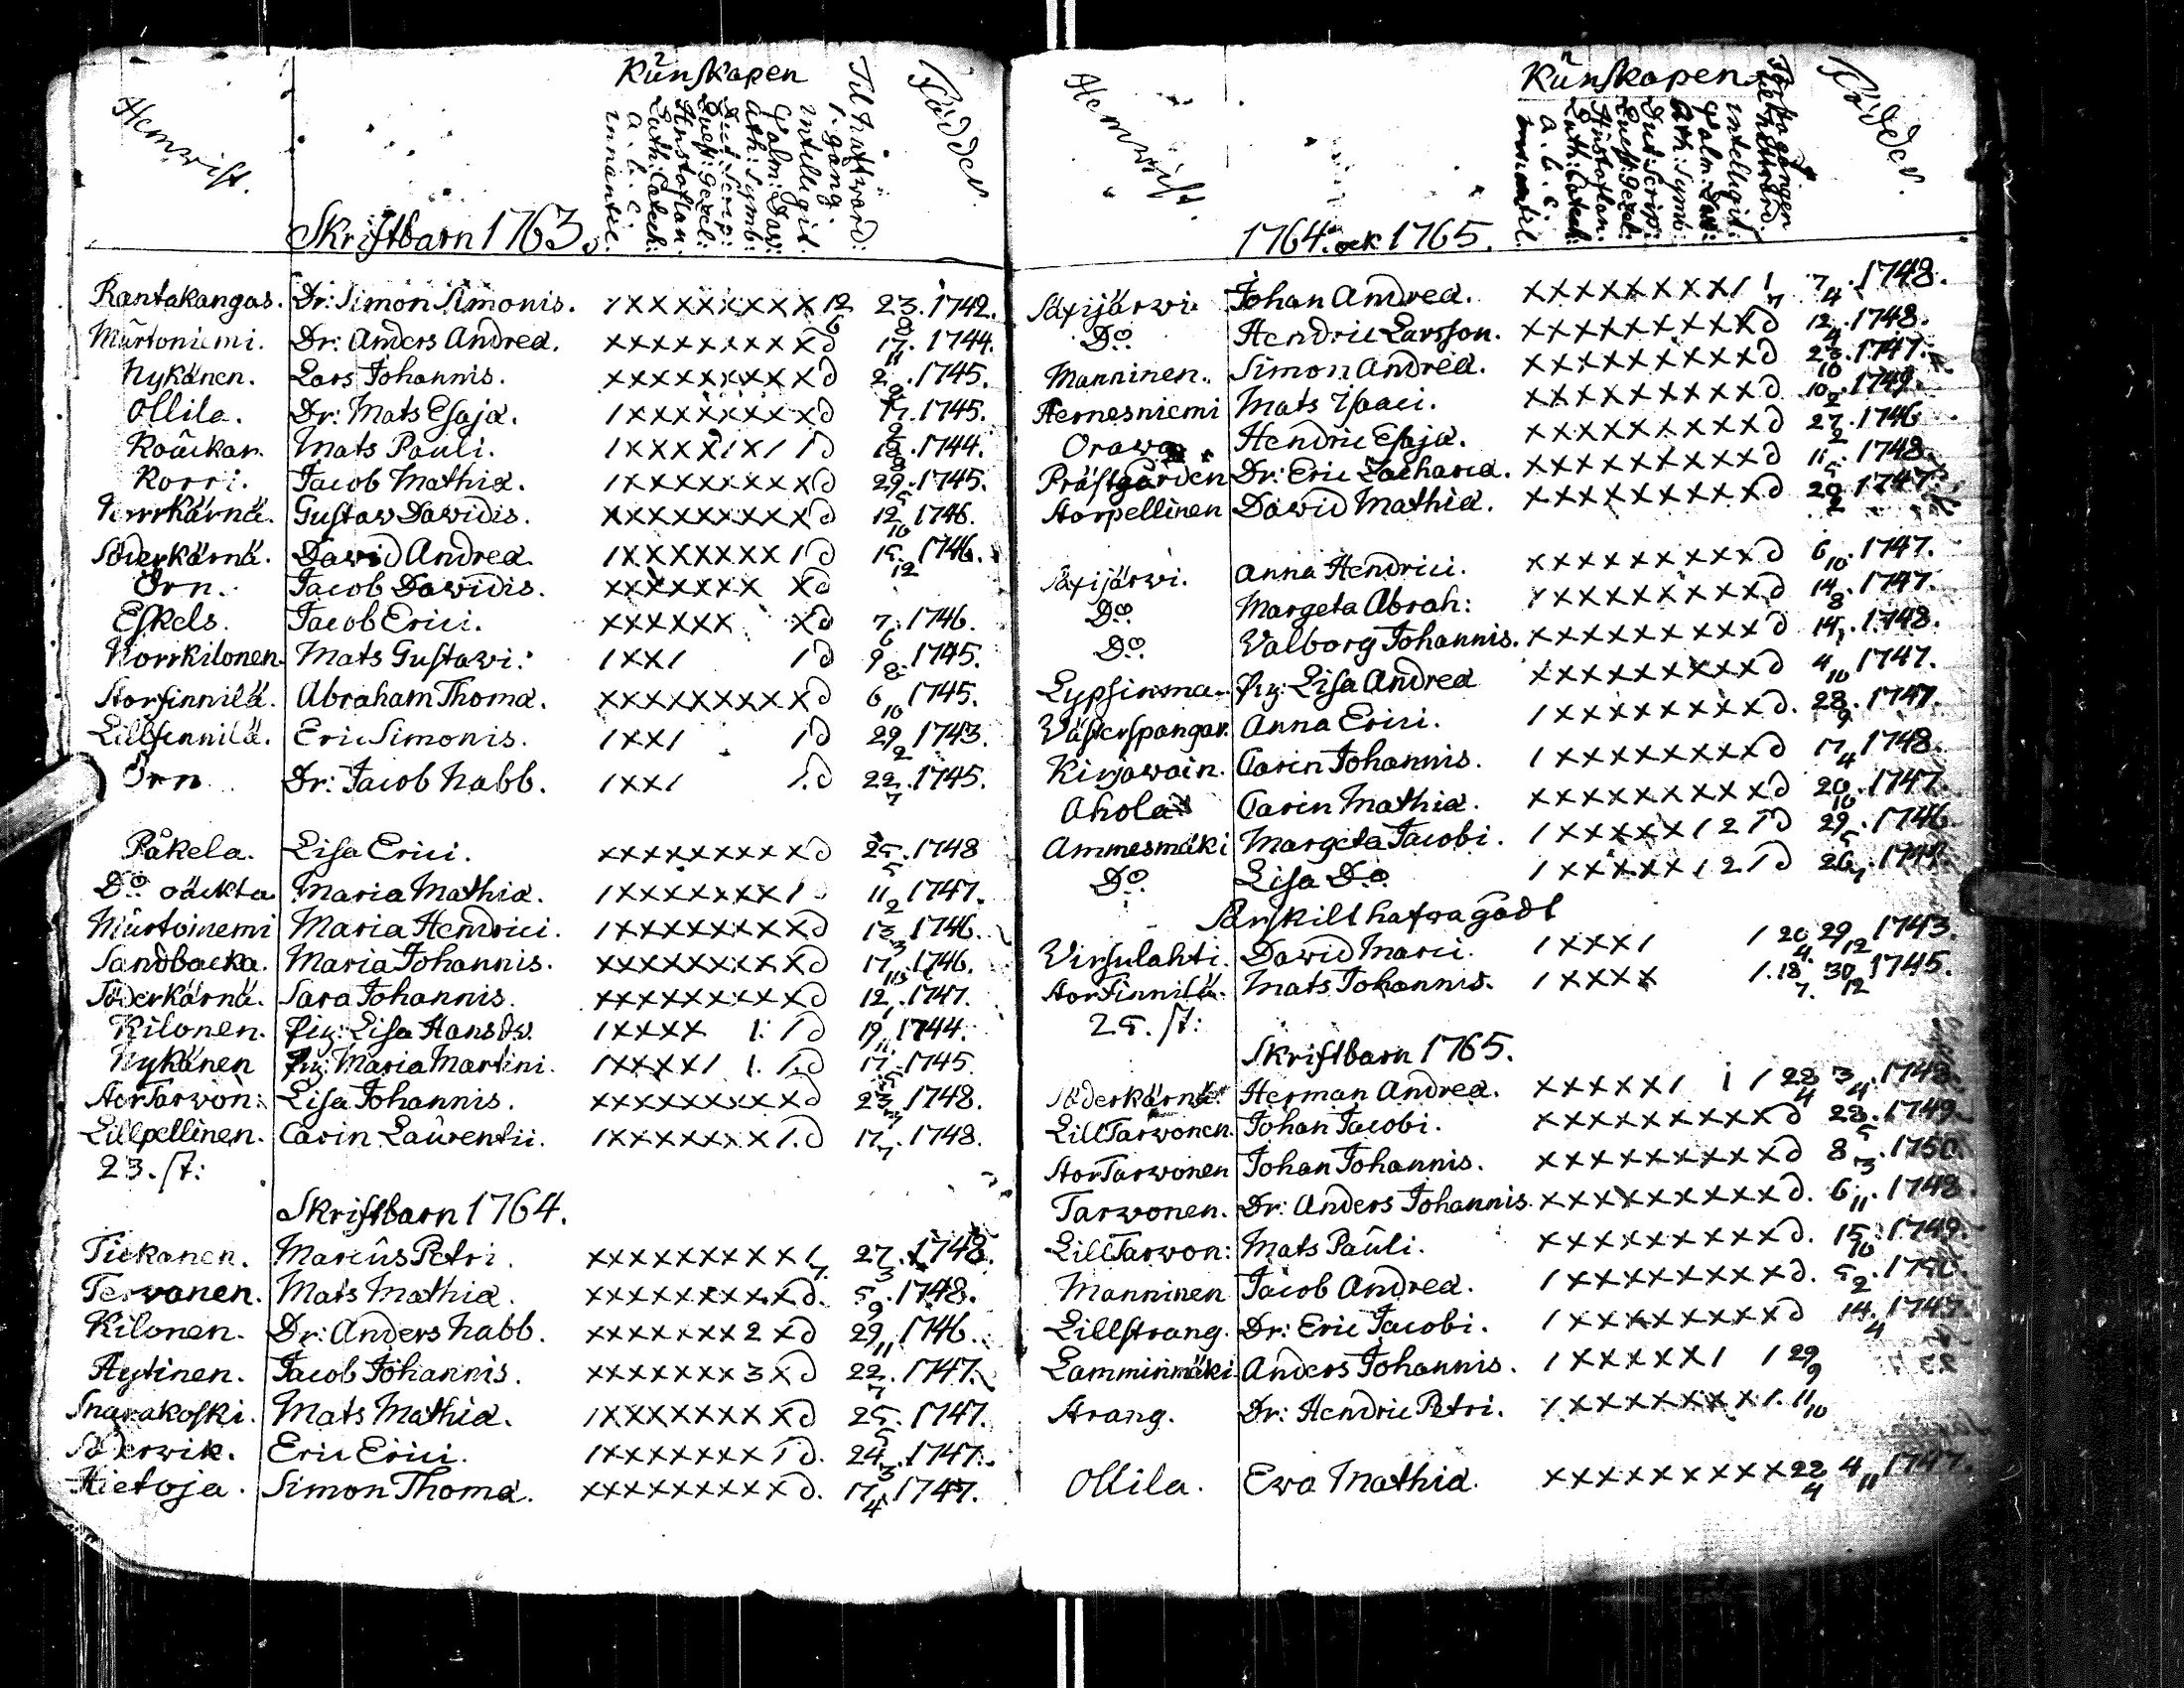 Hemwist.
Kunskapen
innantil.
a. b. c.
Luth: Catech:
Hustaflan.
Quest: Gezel:
Dict: Scrip:
Ath: Symb:
Psalm: Dav:
intelligit.
1. gång.
Til Nattward:
Födder.
Skriftbarn 1763.
Rantakangas. Dr: Simon Simonis. 1 x x x x x x x x 12/6 23/8. 1742.
Murtoniemi. Dr: Anders Andreæ. x x x x x x x x x d 17/11. 1744.
Nykänen. Lars Johannis. x x x x x x x x x d 2/9. 1745.
Ollila. Dr: Mats Esajæ. 1 x x x x x x x x d 1745.
Mats Pauli. 1744.
Korri. Jacob Mathiæ. 1 x x x x x x x x d 29/5. 1745.
Norrkärnä. Gustav Davidis. x x x x x x x x x d 12/10 1746.
Söderkärnä. David Andreæ. 1 x x x x x x x 1 d 15/12. 1746.
Örn. Jacob Davidis. x x x x x x x x d
Eskels. Jacob Erici. x x x x x x x d 7/6. 1746.
Norrkilonen. Mats Gustavi. 1 x x 1 1 d 9/8. 1745.
Storfinnilä. Abraham Thomæ. x x x x x x x x x d 6/10 1745.
Lillfinnilä. Eric Simonis. 1 x x 1 1 d 29/2 1743.
Örn. Dr: Jacob Nabb. 1 x x 1 1. d 22/7. 1745.
Påkela. Lisa Erici. x x x x x x x x x d 25/5. 1748
Do Maria Mathiæ. 1 x x x x x x x 1. 11/2 1747.
Murtoinemi Maria Hendrici. 1 x x x x x x x x d 13/3 1746.
Sandbacka. Maria Johannis. x x x x x x x x x d 17/10 1746.
Söderkärnä. Sara Johannis. x x x x x x x x x d 12/1. 1747.
Kilonen. pig: Lisa Hansdr. 1 x x x x 1. 1 d 19/11. 1744.
Nykänen pig: Maria Martini. 1 x x x x 1 1. 1. d 17/5. 1745
StorTarvon: Lisa Johannis. x x x x x x x x x d 23/3 1748.
Lillpellinen. Carin Laurentii. 1 x x x x x x x 1. d 17/7. 1748.
23. st:
Skriftbarn 1764.
Tiekanen. Marcus Petri. x x x x x x x x x 1/7. 27/3. 1748.
Tervanen. Mats Mathiæ. x x x x x x x x x d. 5/9. 1748.
Kilonen. Dr: Anders Nabb. x x x x x x x 2 x d 29/11 1746.
Hytinen. Jacob Johannis. x x x x x x x 3 x d 22/7. 1747.
Snarakoski. Mats Mathiæ. 1 x x x x x x x x d 25/5. 1747.
Söderwik. Eric Erici. 1 x x x x x x x 1 d. 24/3. 1747.
Hietoja. Simon Thomæ. x x x x x x x x x d. 17/4. 1747.
Hemwist.
Kunskapen
a. b. c.
Luth: Catech:
Hustaflan:
Quest: Gezel:
Dict: Scrip:
Ath: Symb:
Psalm: Dav:
intelligit.
Födder.
1764. ock 1765.
Säxijärwi Johan Andreæ. x x x x x x x x x 1 1/7 7/4. 1748.
Do. Hendric Larsson. x x x x x x x x x x d 12/4. 1748.
Manninen. Simon Andreæ. x x x x x x x x x x d 23/10. 1747.
Hernesniemi Mats Isaaci. x x x x x x x x x x d 10/2. 1749.
Orawa Hendric Esajæ. x x x x x x x x x x d 27/2. 1746
Prästgården Dr: Eric Zachariæ. x x x x x x x x x x d 11/5. 1748.
Storpellinen David Mathiæ. x x x x x x x x x x d 20/2. 1747.
Säxijärwi. Anna Hendrici. x x x x x x x x x x d 6/10. 1747.
Do. Margeta Abrah: 1 x x x x x x x x x d 14/8. 1747.
Do. Valborg Johannis. x x x x x x x x x x d 1748.
pig: Lisa Andreæ x x x x x x x x x x d 4/10 1747.
Wästerspangar. Anna Erici. 1 x x x x x x x x x d. 28/9. 1747.
Kirjawain. Carin Johannis. 1 x x x x x x x x x d 17/4 1748.
Ahola Carin Mathiæ. x x x x x x x x x x d 20/10. 1747.
Ammesmäki Margeta Jacobi. 1 x x x x x 1 2 1 d 29/5. 1746.
Do. Lisa Do. 1 x x x x x 1 2 1 d 26/1. 1744.
Särskill hafwa gådt
Virsulahti. David Marci. 1 x x x 1 1 20/4. 29/12 1743.
StorFinnilä. Mats Johannis. 1 x x x x 1. 18/7. 30/12 1745.
25. st:
Skriftbarn 1765.
Söderkärnä Herman Andreæ. x x x x x x 1 1 1 28/4 3/4. 1748.
LillTarwonen. Johan Jacobi. x x x x x x x x x x d 28/5. 1749.
StorTarwonen Johan Johannis. x x x x x x x x x x d 8/3. 1750.
Tarwonen. Dr: Anders Johannis. x x x x x x x x x x d. 6/11. 1748.
LillTarwon: Mats Pauli. x x x x x x x x x x d. 15/10. 1749.
Manninen Jacob Andreæ. 1 x x x x x x x x x d. 5/2. 1750.
Lillstrang. Dr: Eric Jacobi. 1 x x x x x x x x x d 14/4. 1747.
Lamminmäki Anders Johannis. 1 x x x x x 1 1 29/9
Strang. Dr: Hendric Petri. 1 x x x x x x x x 1. 11/10
Ollila. Ewa Mathiæ. x x x x x x x x x x 22/4 4/11 1747.